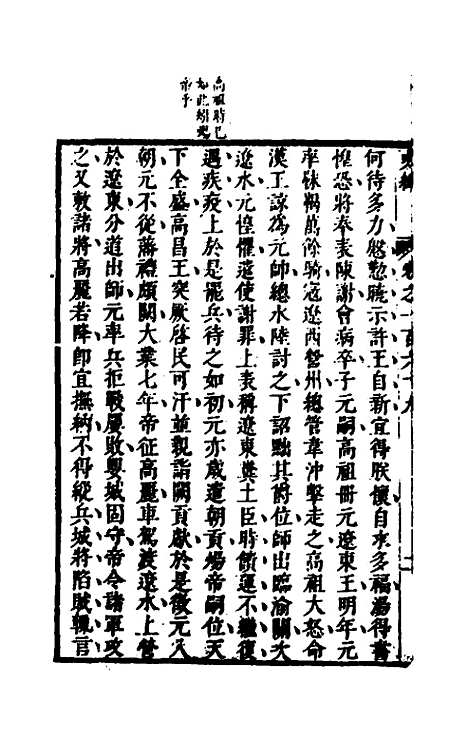 高祖時已
如此
帝乎
何待多力慇懃曉示許王自新宜得朕懷自求多福湯得書
惶恐將奉表陳謝會病卒子元嗣高祖冊元遼東王明年元
率靺鞨萬餘騎寇遼西營州總管韋沖擊走之高祖大怒命
漢王諒為元帥總水陸討之下詔黜其爵位師出臨渝關次
遼水元惶懼遣使謝罪上表稱遼東糞土臣時餽運不繼復
遇疾疫上於是罷兵待之如初元亦歲遣朝貢煬帝嗣位天
下全盛高昌王突厥啓民可汗並親詣闕貢獻於是徵元入
朝元不從藩禮頗闕大業七年帝征高麗車駕渡遼水上營
於遼東分道出師元率兵拒戰屢敗嬰城固守帝令諸軍攻
之又敕諸將高麗若降卽宜撫納不得縱兵城將陷賊輒言